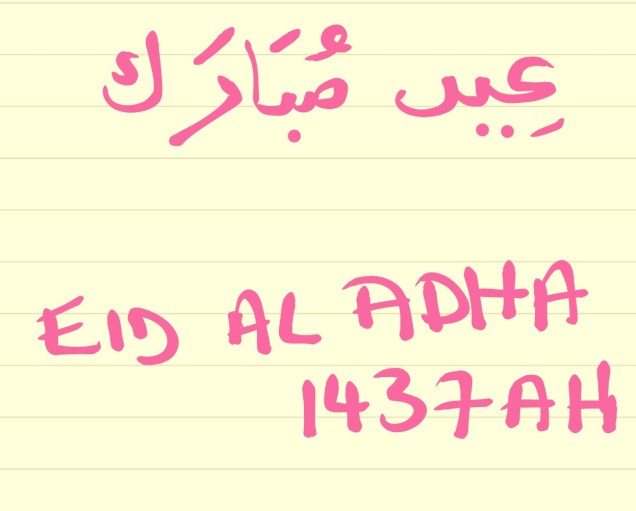 عِيد مُبَارَك
EID AL ADHA
1437AH